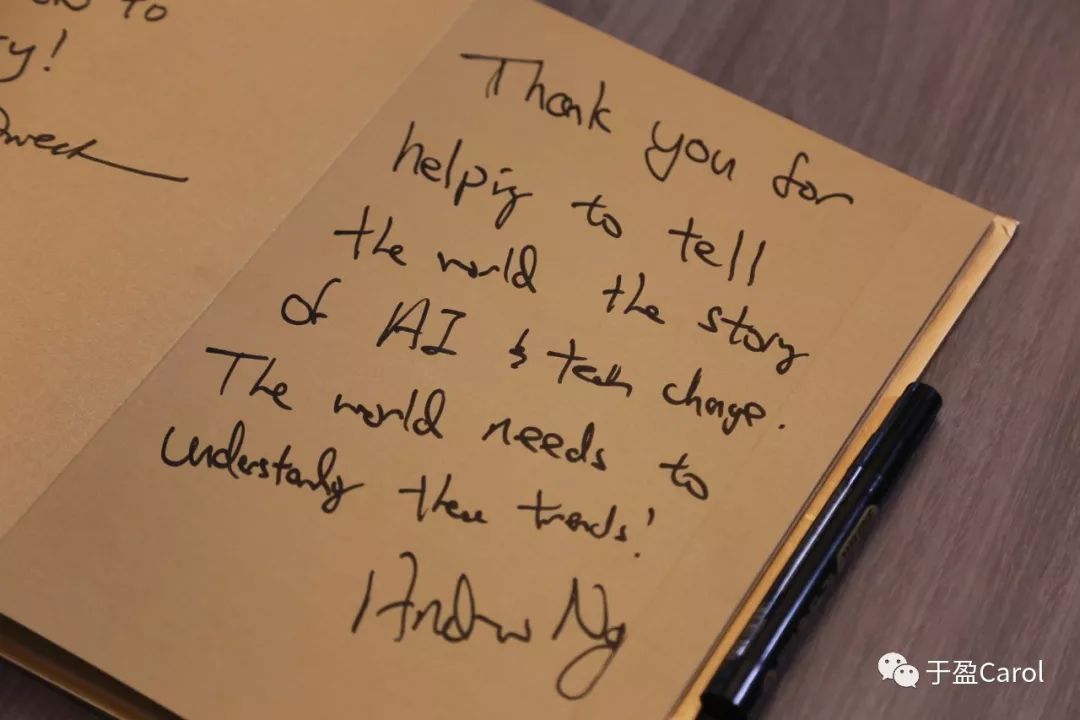 to
y!
Dweck
Thank you for
helping to tell
the world the story
of AI & tech change.
The world needs to
understandg these trends!
Andrew Ng
于盈Carol